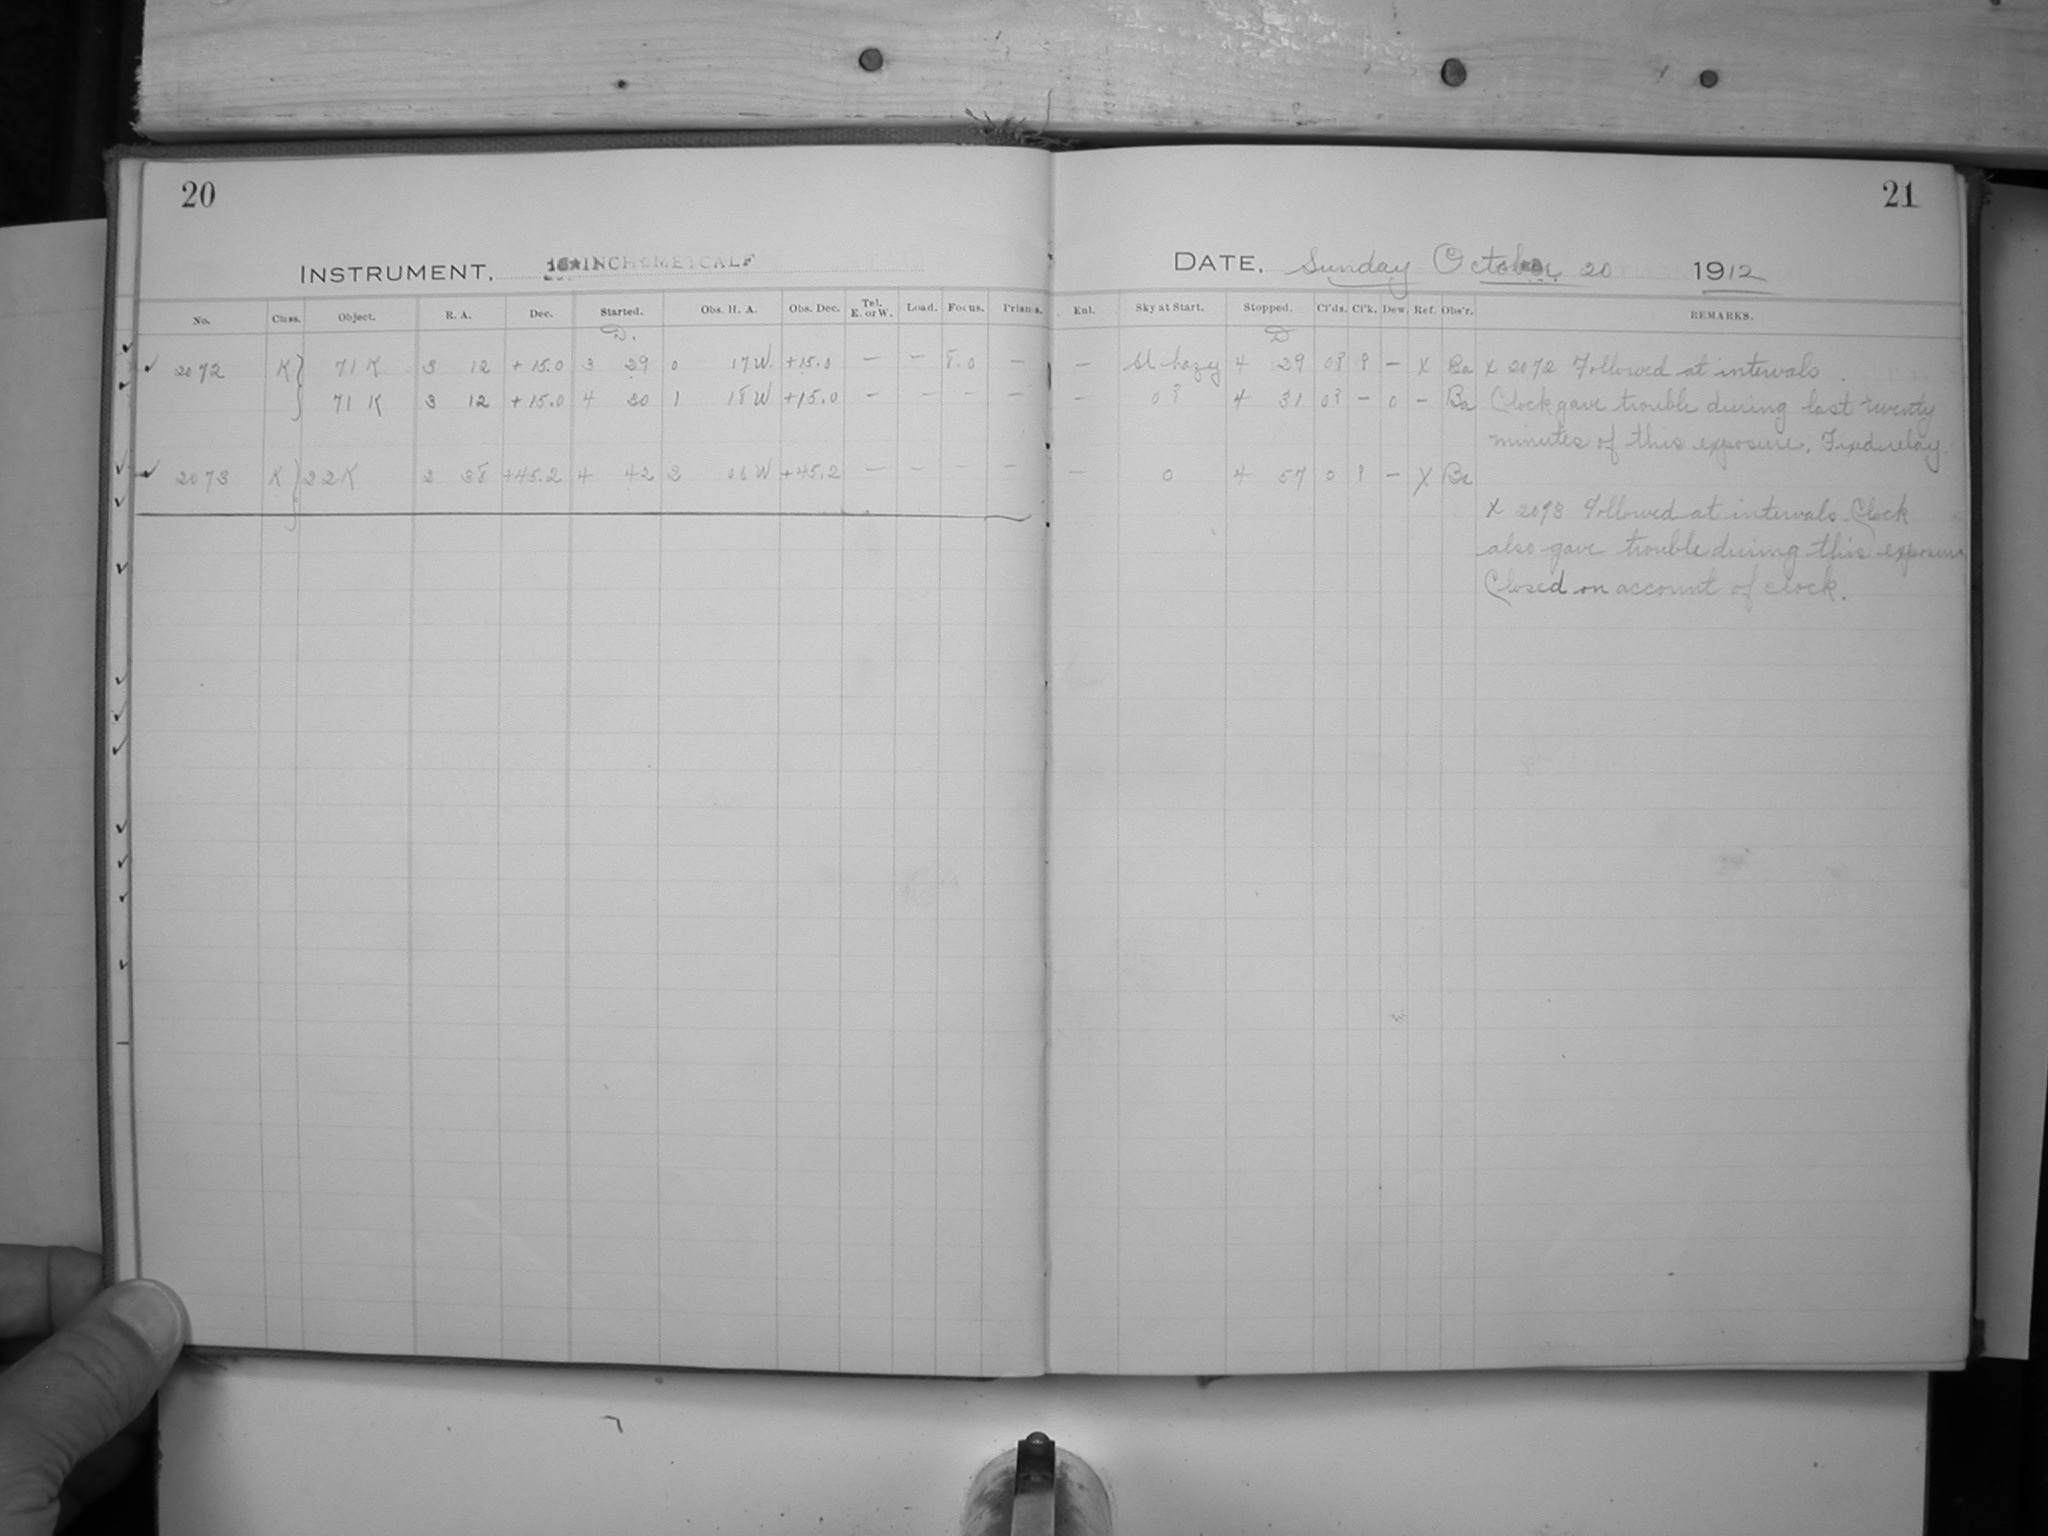 20
21
INSTRUMENT. 16 INCH METCALF
DATE. Sunday October 20 1912
No. Class. Object. R. A. Dec. Started. Obs. H. A. Obs. Dec. Tel. E. or W. Load. Focus. Prisms. Enl. Sky at Start. Stopped. Cl'ds. Cl'k. Dew. Ref. Obs'r. REMARKS.
D. D
2072 K 71 K 3 12 +15.0 3 29 0 17 W. +15.0 — — 8.0 — — Sl hazy 4 29 0? ? — X Ba X 2072 Followed at intervals.
71 K 3 12 +15.0 4 30 1 18 W +15.0 — — — — — 0? 4 31 0? — 0 — Ba Clock gave trouble during last twenty
minutes of this exposure. Fixed relay.
2073 K 22K 2 38 +45.2 4 42 2 06 W +45.2 — — — — — 0 4 57 0 ? — X Ba
X 2073 Followed at intervals. Clock
also gave trouble during this exposure
Closed on account of clock.